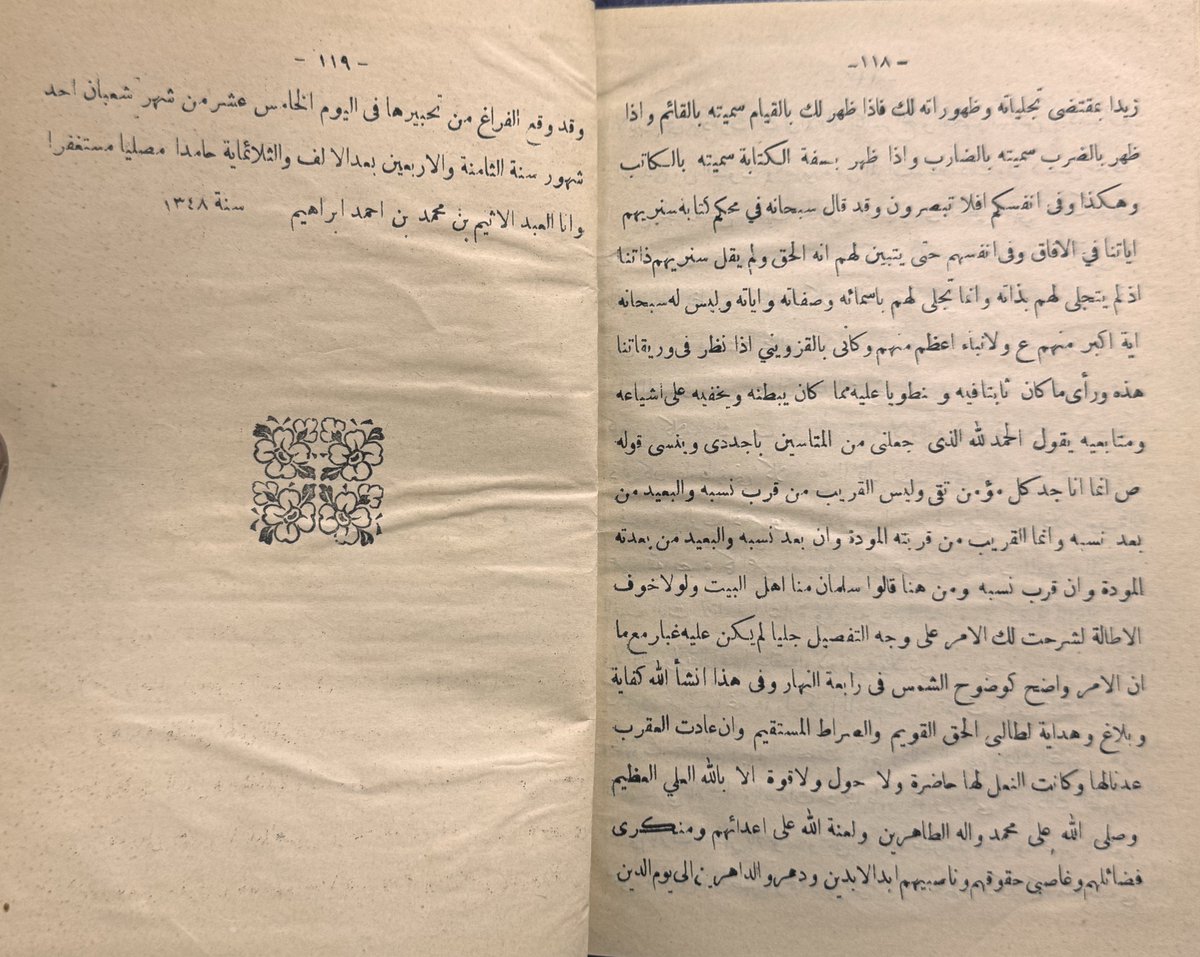 -١١٨-
زيدا بمقتضى تجلياته وظهوراته لك فاذا ظهر لك بالقيام سميته بالقائم واذا
ظهر بالضرب سميته بالضارب واذا ظهر بصفة الكتابة سميته بالكاتب
وهكذا وفى انفسكم افلا تبصرون وقد قال سبحانه في محكم كتابه سنريهم
اياتنا في الافاق وفى انفسهم حتى يتبين لهم انه الحق ولم يقل سنريهم ذاتنا
اذ لم يتجلى لهم بذاته وانما تجلى لهم باسمائه وصفاته واياته وليس له سبحانه
اية اكبر منهم ع ولانباء اعظم منهم وكأنى بالقزويني اذا نظر فى وريقاتنا
هذه ورأى ما كان ثابتا فيه و نطويا عليه مما كان يبطنه ويخفيه على اشياعه
ومتابعيه يقول الحمد لله الذى جعلنى من المتاسين باجددى وينسى قوله
ص انما انا جد كل مؤمن تقى وليس القريب من قرب نسبه والبعيد من
بعد نسبه وانما القريب من قربته المودة وان بعد نسبه والبعيد من بعدته
المودة وان قرب نسبه ومن هنا قالوا سلمان منا اهل البيت ولولا خوف
الاطالة لشرحت لك الامر على وجه التفصيل جليا لم يكن عليه غبار مع ما
ان الامر واضح كوضوح الشمس فى رابعة النهار وفى هذا انشأ الله كفاية
وبلاغ وهداية لطالبى الحق القويم والصراط المستقيم وان عادت العقرب
عدنا لها وكانت النعل لها حاضرة ولا حول ولا قوة الا بالله العلي العظيم
وصلى الله على محمد واله الطاهرين ولعنة الله على اعدائهم ومنكرى
فضائلهم وغاصبي حقوقهم وناصبيهم ابد الابدين ودهر والداهرين الى يوم الدين
- ١١٩ -
وقد وقع الفراغ من تحبيرها فى اليوم الخامس عشر من شهر شعبان احد
شهور سنة الثامنة والاربعين بعد الالف والثلاثماية حامدا مصليا مستغفرا
وانا العبد الاثيم بن محمد بن احمد ابراهيم سنة ١٣٤٨